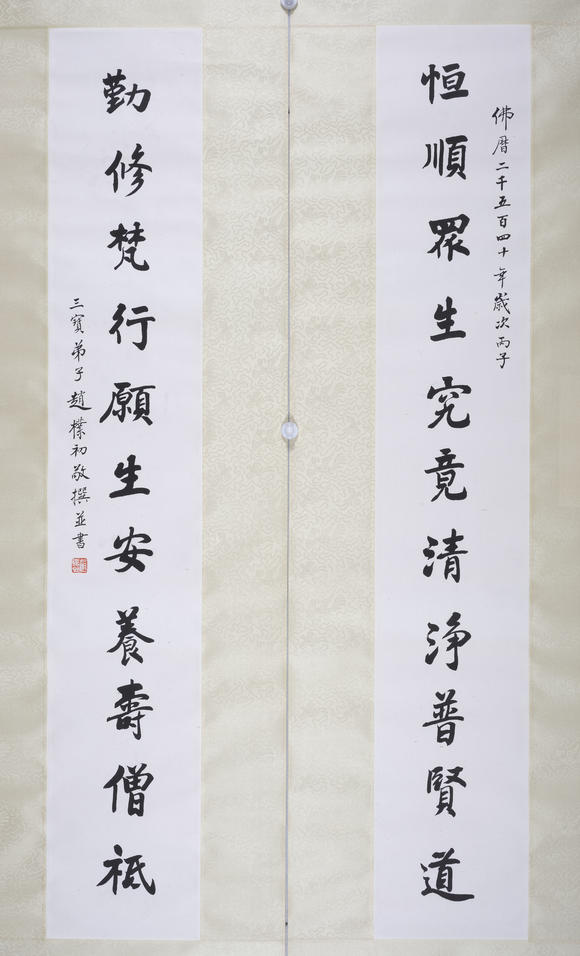 佛曆二千五百四十年歲次丙子
恒順眾生究竟清淨普賢道
勤修梵行願生安養壽僧祇
三寶弟子趙樸初敬撰並書